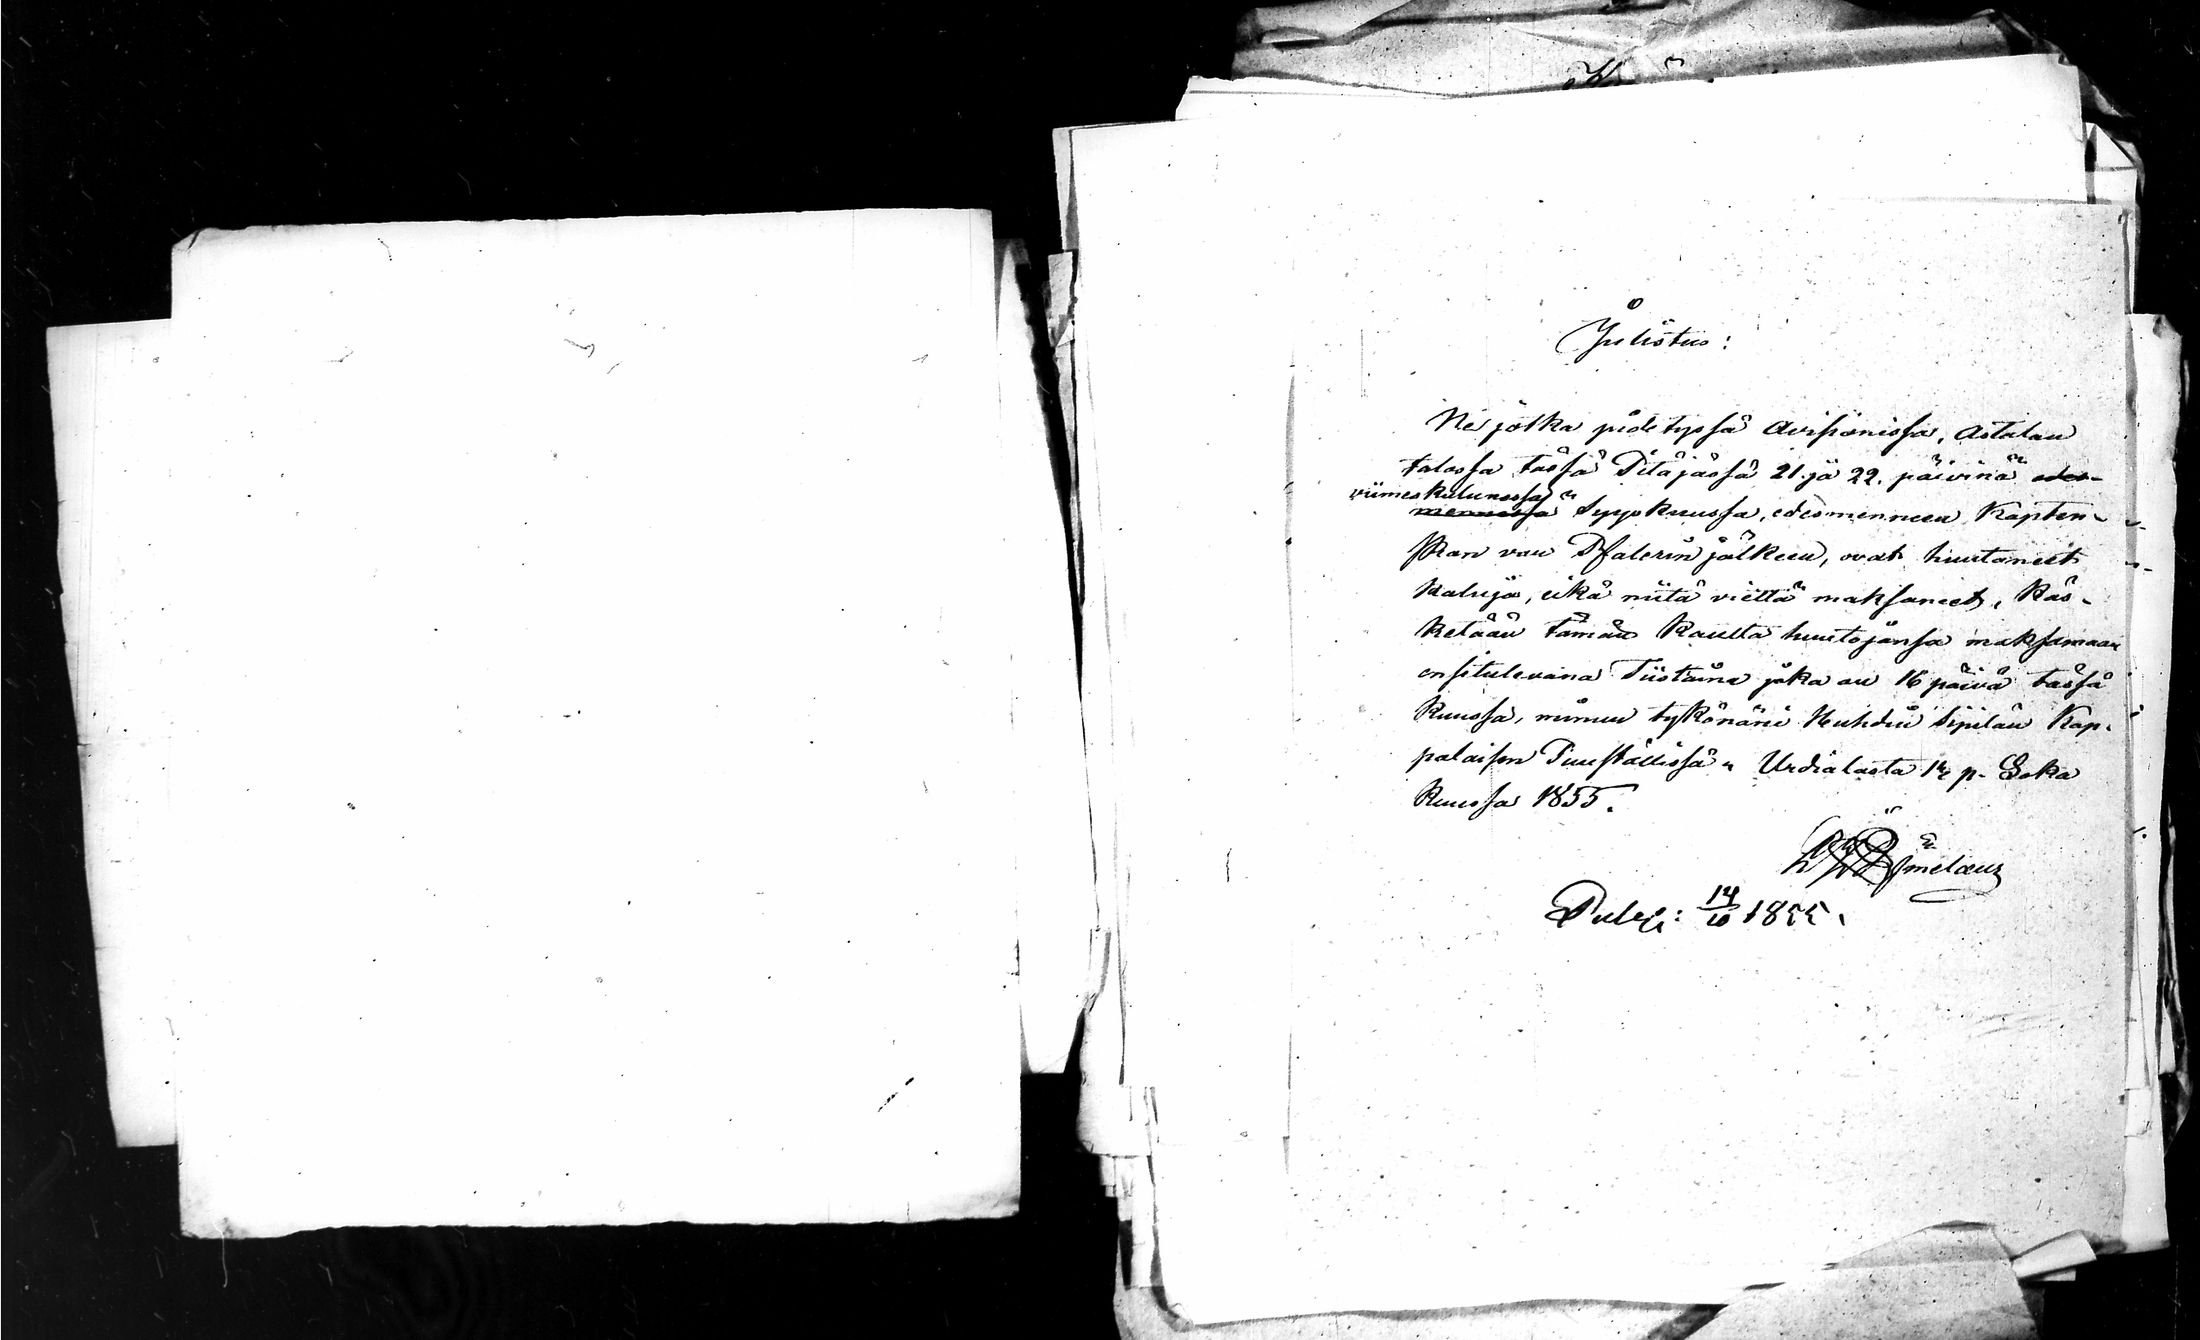 Julistus:
Ne jotka pidetyssä Avisionissa, Astalan
talossa tässä Pitäjässä 21. ja 22. päivinä edes-
viimeskuluneessa
mennessä Syyskuussa, edesmenneen Kapten-
skan von Pfalerin jälkeen, ovat huutaneet
Kaluja, eikä niitä vielä maksaneet, Käs-
ketään tämän kautta huutojansa maksamaan
ensitulevana Tiistaina joka on 16 päivä tässä
Kuussa, minun tykönäni Huhdin Sipilän Kap-
palaisen Puustallissa. Urdialasta 12 p. Loka
Kuussa 1855.
Publ: 14/10 1855.